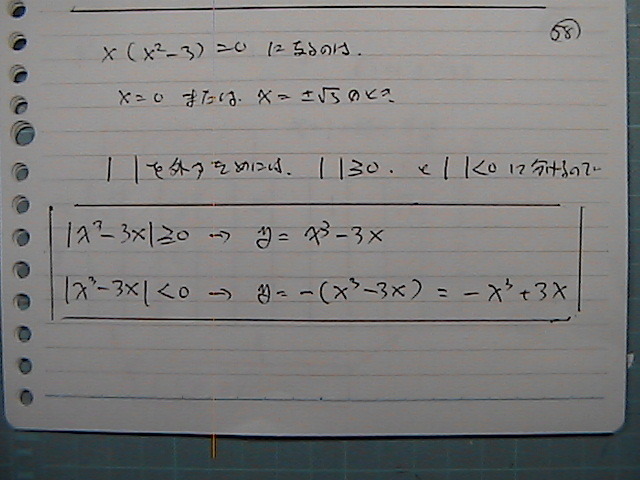 58
x(x²-3)=0 になるのは.
x=0 または x=±√3 のとき
| |を外すためには. | |≥0. と | |<0 に分けるので
|x³-3x|≥0 → y= x³-3x
|x³-3x|<0 → y=-(x³-3x) = -x³+3x